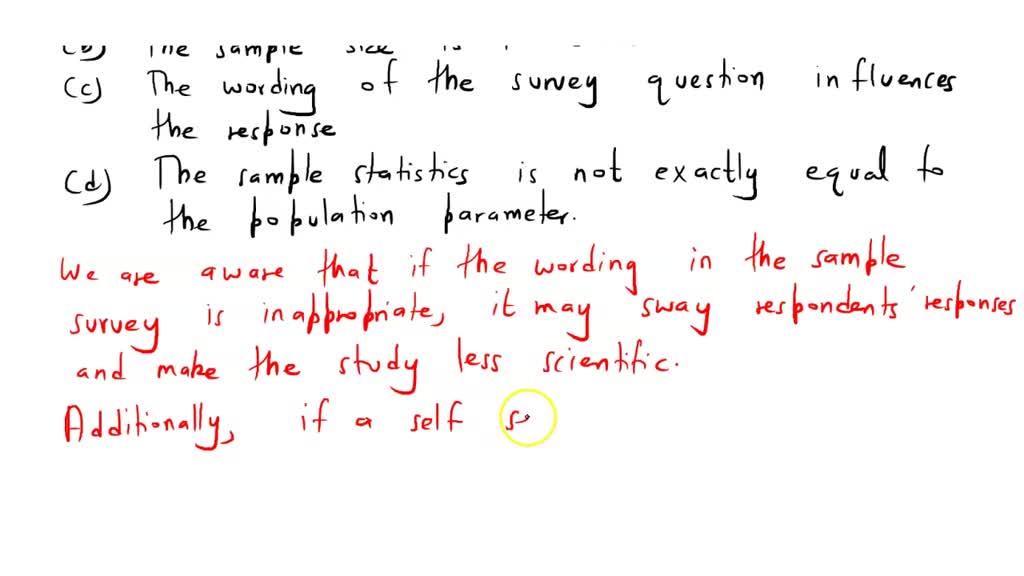 (b) The sample size is
(c) The wording of the survey question influences
the response
(d) The sample statistics is not exactly equal to
the population parameter.
We are aware that if the wording in the sample
survey is inappropriate, it may sway respondents' responses
and make the study less scientific.
Additionally, if a self s